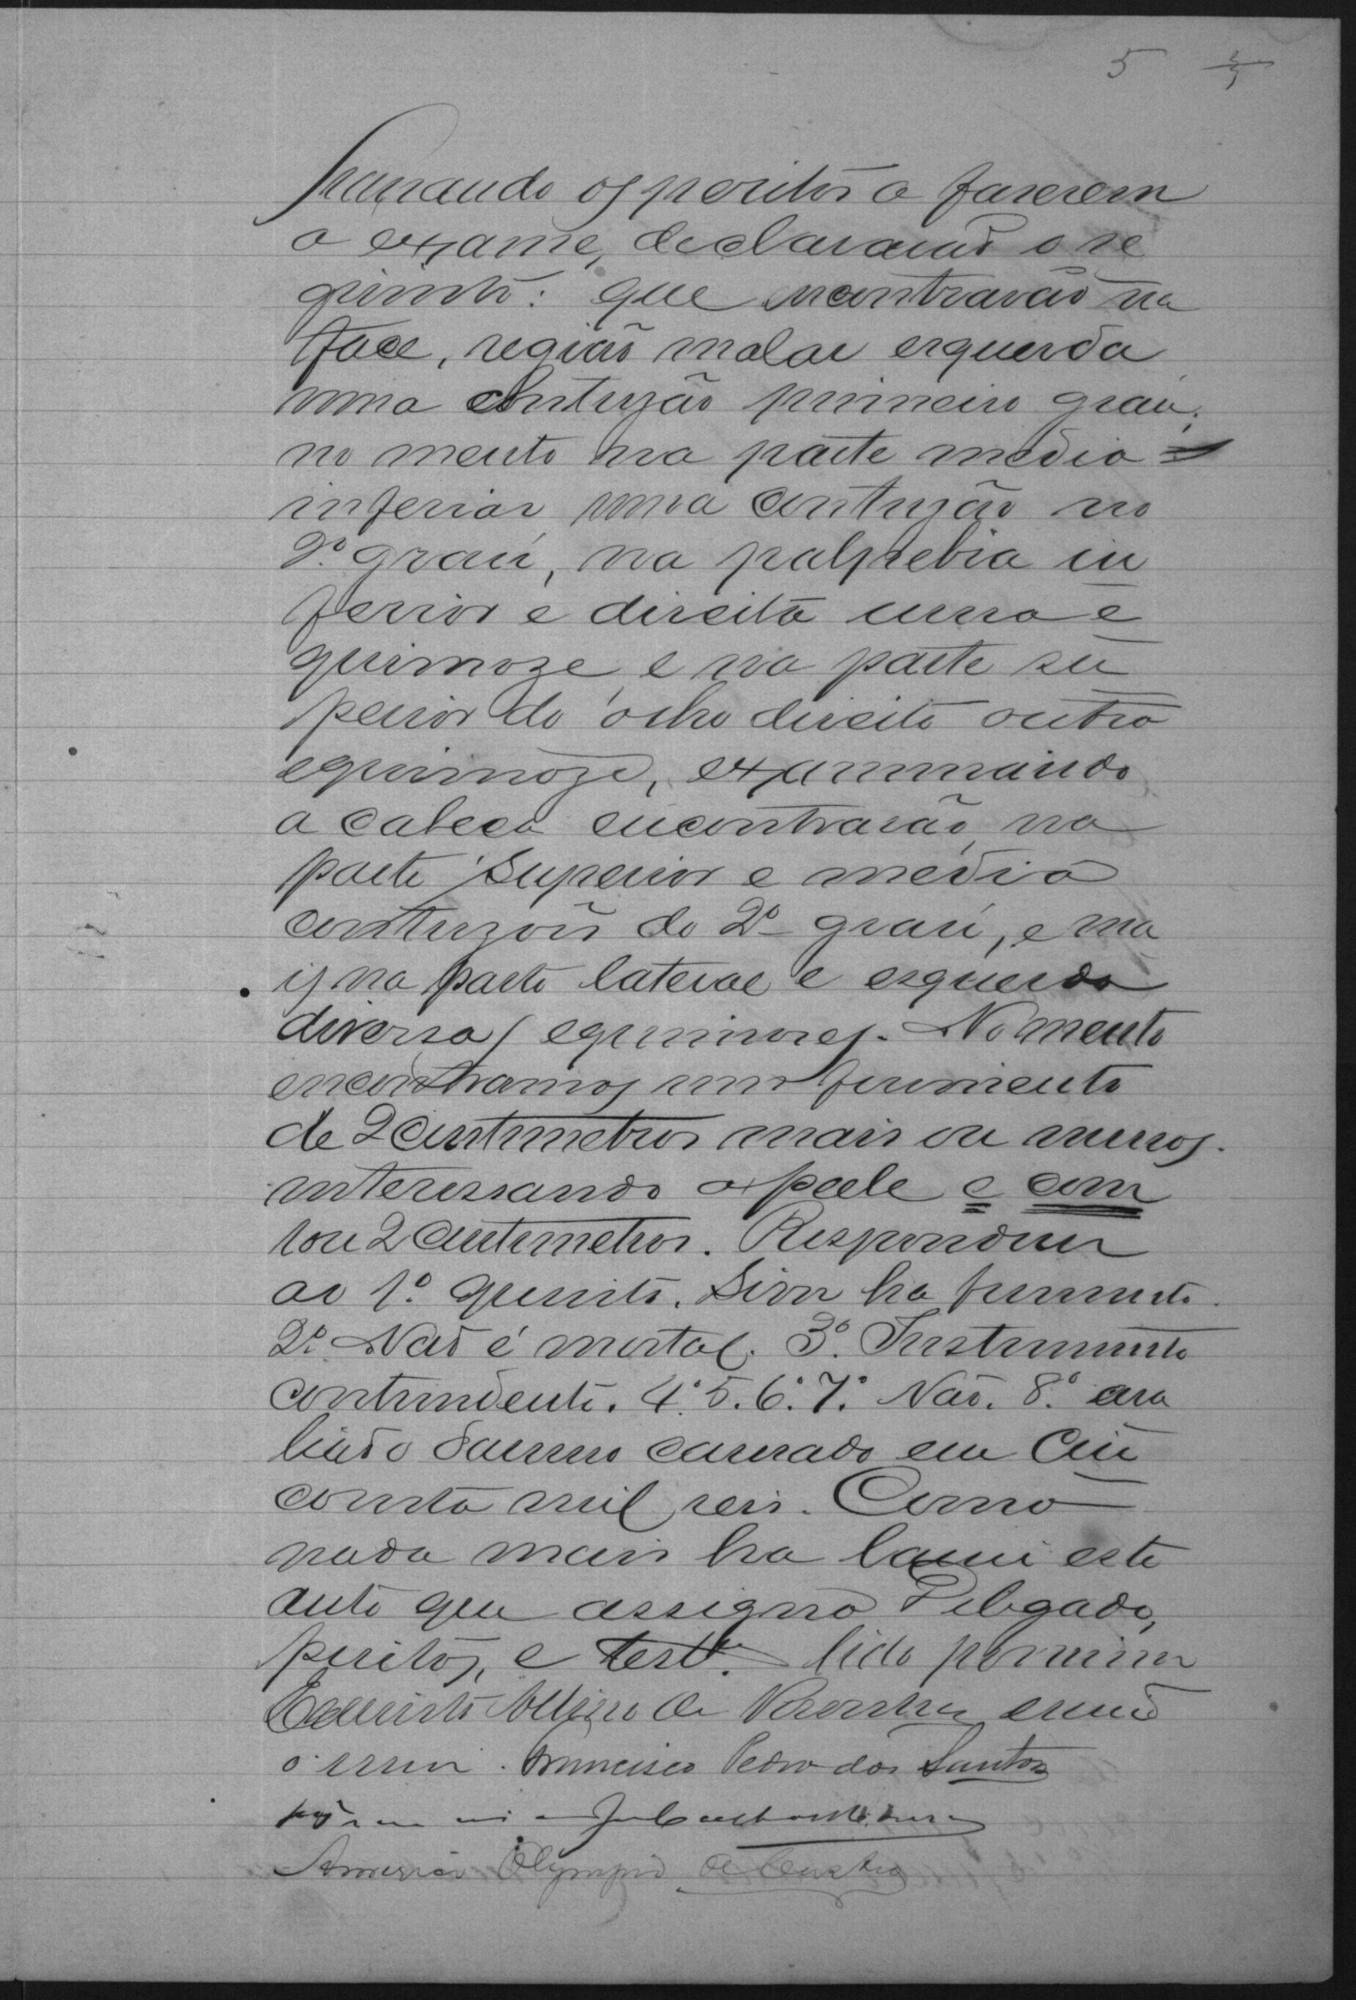 5
os peritos a fazerem
o exame, declararaõ o se
guinte: que encontraraõ na
face, região malar esquerda
uma contuzão primeiro grau;
no mento na parte media =
inferior uma contuzão no
2º grau, na palpebra in
ferior e direita uma e
quimoze, e na parte su
perior do olho direito outra
equimoze, examminando
a cabeça encontrarão, na
parte superior e media
contuzoẽs do 2º grau, e ma
is na parte lateral e esquerda
diversas equimozes. No mento
encontramos um ferimento
de 2 centimetros mais ou menos.
interessando a pele e com
2 centimetros. Responderam
ao 1º quisito. Sim ha ferimento.
2º Naõ é mortal. 3º Instrumento
contundente. 4º 5. 6º 7º Naõ. 8º ava
liado damno cauzado em cin
coenta mil reis. Como
nada mais ha lavrei este
auto que assigna Delegado,
peritos, e test.ª lido por mim
de escrivaõ
o escrevi. Francisco Pedro dos Santos
Americo Olympio de Castro